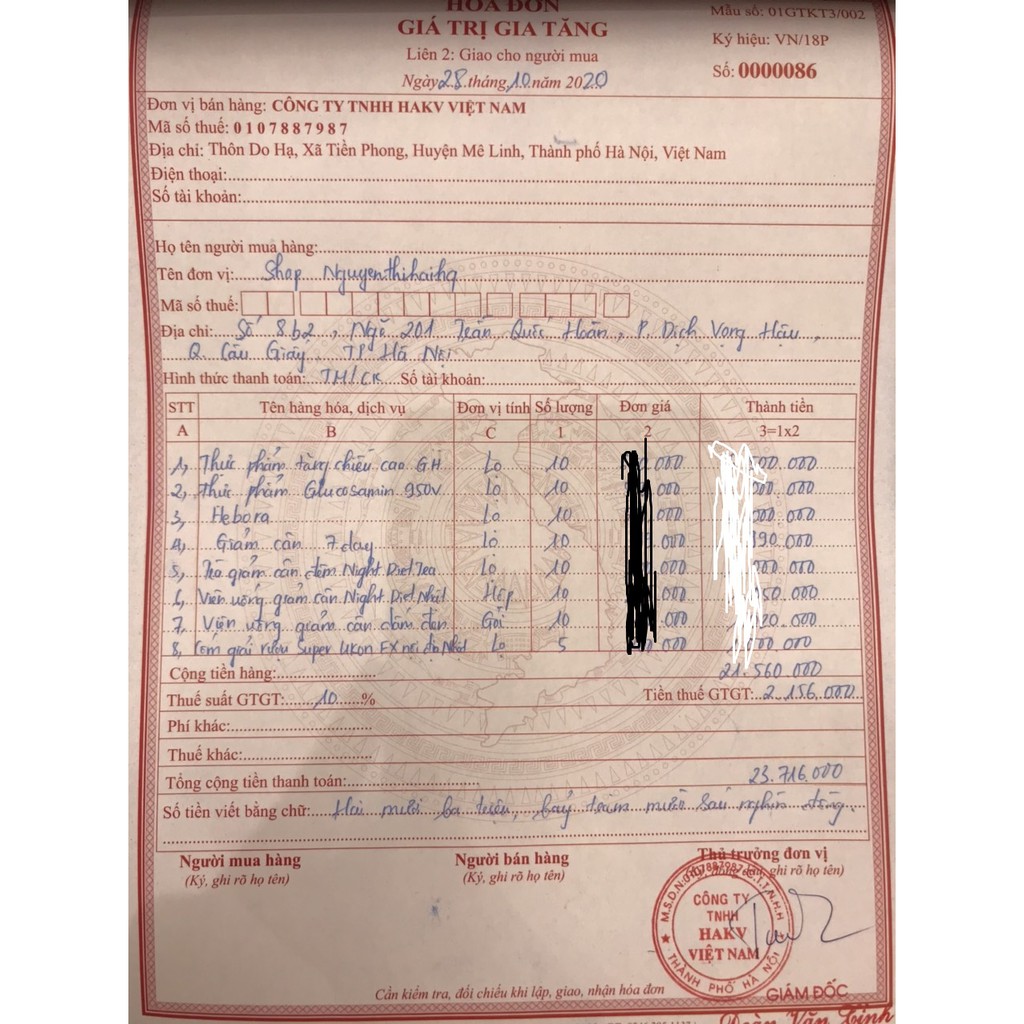 HÓA ĐƠN
GIÁ TRỊ GIA TĂNG
Liên 2: Giao cho người mua
Ngày 28 tháng 10 năm 2020
Mẫu số: 01GTKT3/002
Ký hiệu: VN/18P
Số: 0000086
Đơn vị bán hàng: CÔNG TY TNHH HAKV VIỆT NAM
Mã số thuế: 0107887987
Địa chỉ: Thôn Do Hạ, Xã Tiền Phong, Huyện Mê Linh, Thành phố Hà Nội, Việt Nam
Điện thoại:
Số tài khoản:
Họ tên người mua hàng:
Tên đơn vị: Shop Nguyenthihaihq
Mã số thuế:
Địa chỉ: Số 8b2, Ngõ 201 Trần Quốc Hoàn, P. Dịch Vọng Hậu,
Q. Cầu Giấy TP Hà Nội
Hình thức thanh toán: TM/CK Số tài khoản:
STT Tên hàng hóa, dịch vụ Đơn vị tính Số lượng Đơn giá Thành tiền
A B C 1 2 3=1x2
1, Thực phẩm tăng chiều cao GH Lọ 10 000 000.000
2, Thực phẩm Glucosamin 950V Lọ 10 000 000.000
3, Hebora Lọ 10 000 000.000
4, Giảm cân 7 day Lọ 10 000 190.000
5, Trà giảm cân đêm Night Diet Tea Lọ 10 000 000.000
6, Viên uống giảm cân Night Diet Nhật Hộp 10 000 050.000
7, Viên uống giảm cân đốm đen Gói 10 .000 20.000
8, Cốm giải rượu Super Ukon EX nội địa Nhật Lọ 5 000 000
Cộng tiền hàng: 21.560.000
Thuế suất GTGT: 10 % Tiền thuế GTGT: 2.156.000
Phí khác:
Thuế khác:
Tổng cộng tiền thanh toán: 23.716.000
Số tiền viết bằng chữ: Hai mươi ba triệu, bảy trăm mười sáu nghìn đồng.
Người mua hàng Người bán hàng Thủ trưởng đơn vị
(Ký, ghi rõ họ tên) (Ký, ghi rõ họ tên) (Ký, đóng dấu, ghi rõ họ tên)
M.S.D.N:0107887987-C.T.T.N.H.H
CÔNG TY
TNHH
HAKV
VIỆT NAM
THÀNH PHỐ HÀ NỘI
Cần kiểm tra, đối chiếu khi lập, giao, nhận hóa đơn
GIÁM ĐỐC
Đoàn Văn